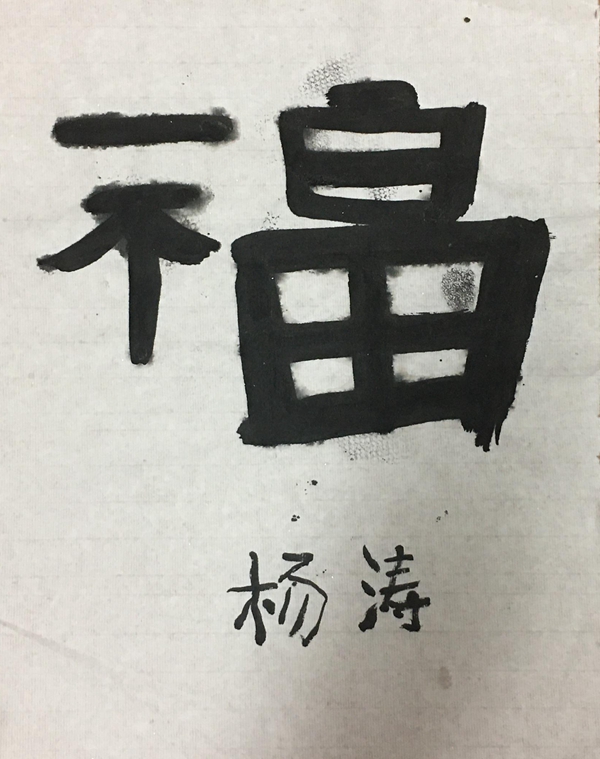 福
杨涛